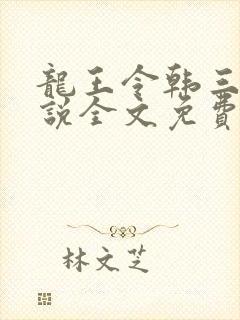 龍王令韩三
說全文免費
林文芝